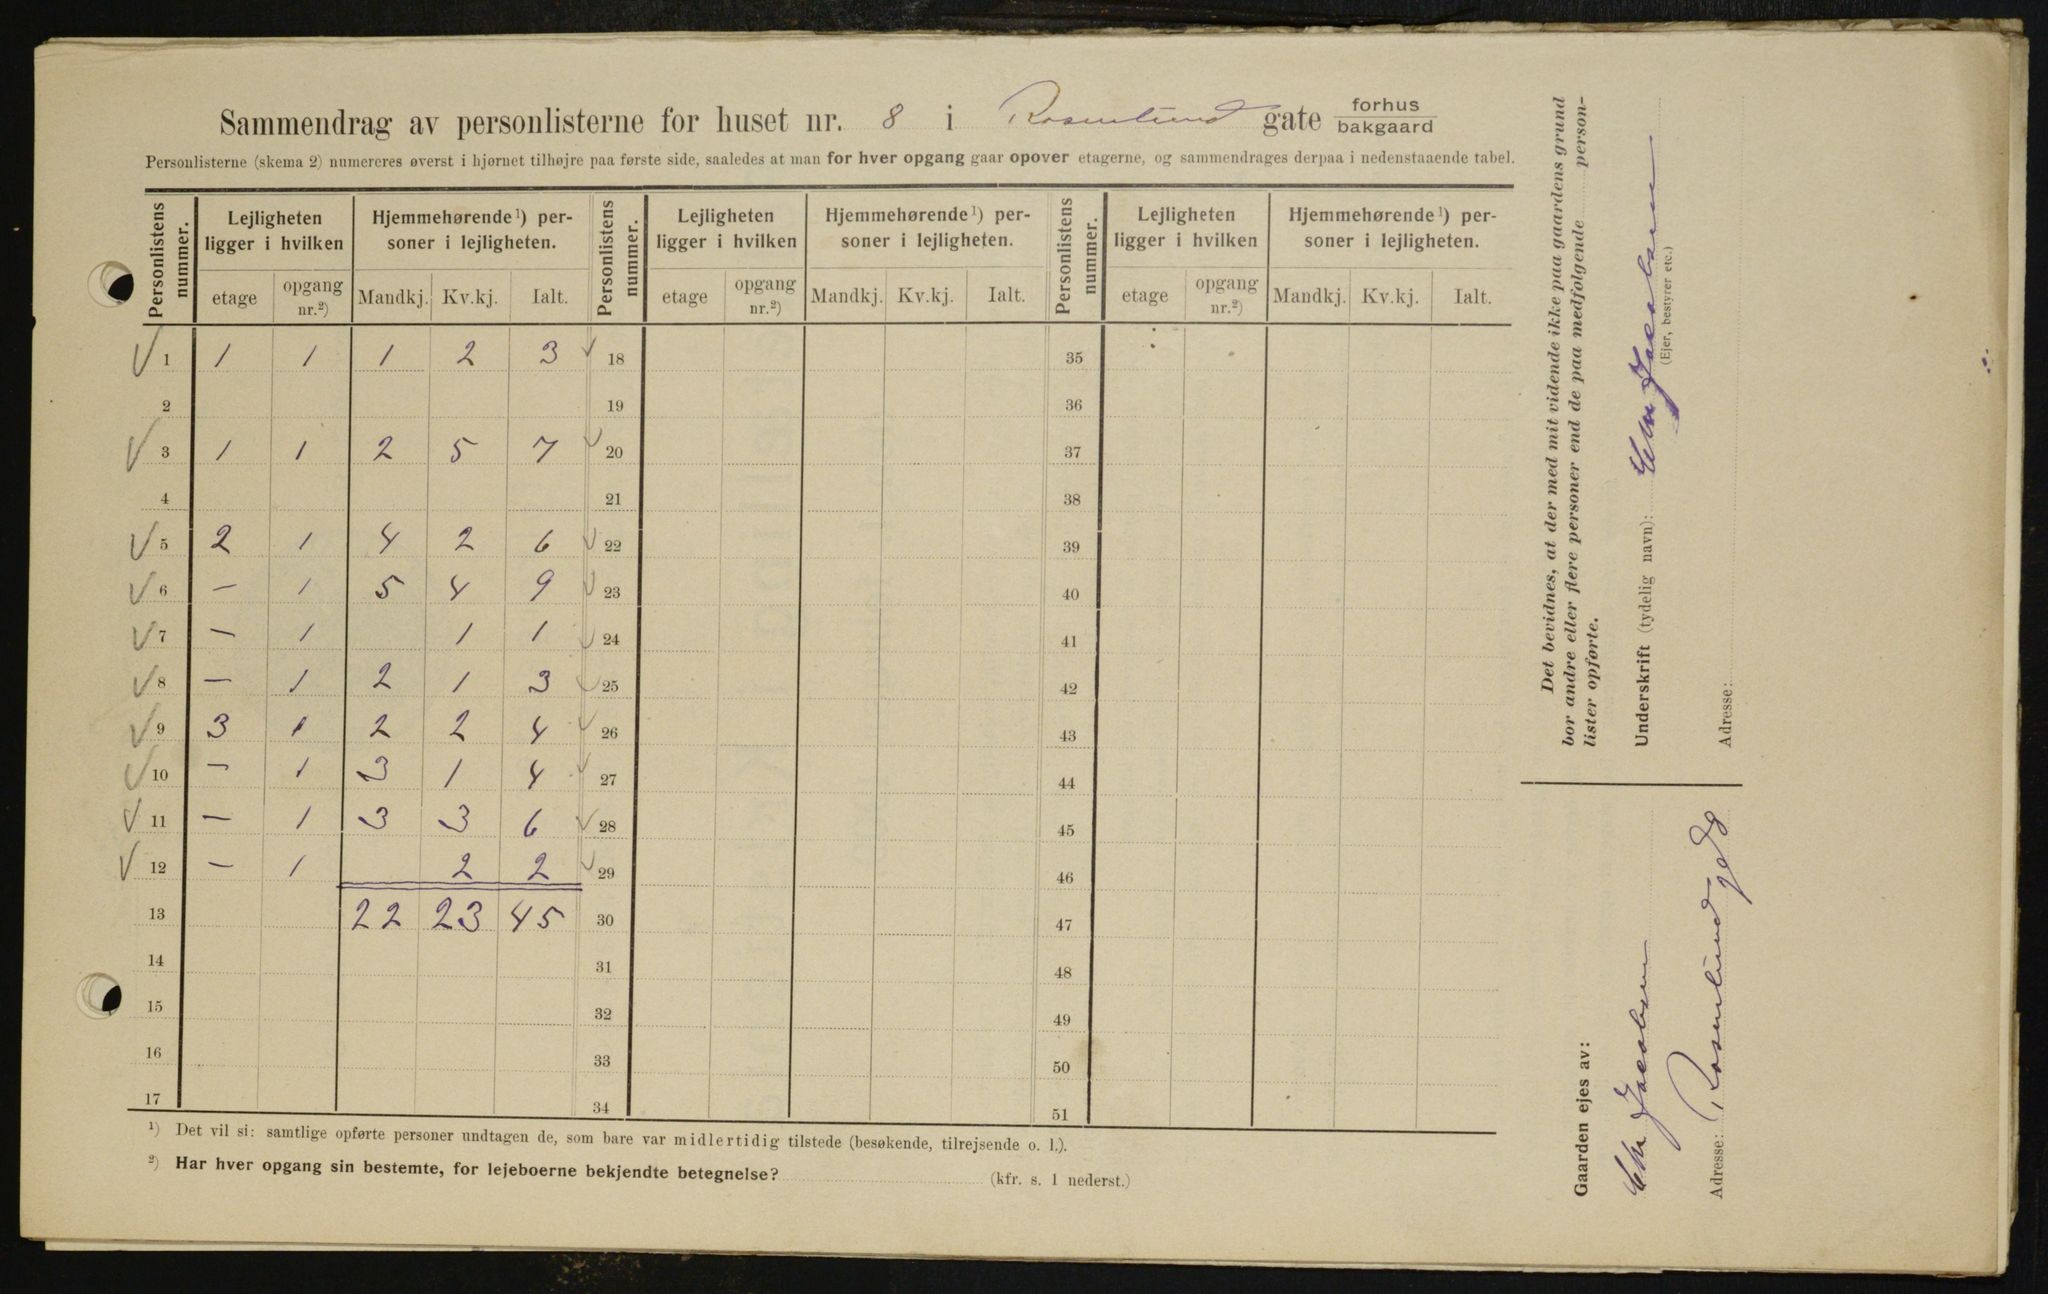 Sammendrag av personlisterne for huset nr. 8 i Rosenlund gate forhus bakgaard
Personlisterne (skema 2) numereres øverst i hjørnet tilhøjre paa første side, saaledes at man for hver opgang gaar opover etagerne, og sammendrages derpaa i nedenstaaende tabel.
Personlistens nummer. Lejligheten ligger i hvilken Hjemmehørende ¹) personer i lejligheten. Personlistens nummer. Lejligheten ligger i hvilken Hjemmehørende ¹) personer i lejligheten. Personlistens nummer. Lejligheten ligger i hvilken Hjemmehørende ¹) personer i lejligheten.
etage opgang nr.²) Mandkj. Kv.kj. Ialt. etage opgang nr.²) Mandkj. Kv.kj. Ialt. etage opgang nr.²) Mandkj. Kv.kj. Ialt.
✓ 1 1 1 1 2 3 ✓ 18 35
2 19 36
✓ 3 1 1 2 5 7 ✓ 20 37
4 21 38
✓ 5 2 1 4 2 6 ✓ 22 39
✓ 6 – 1 5 4 9 ✓ 23 40
✓ 7 – 1 1 1 ✓ 24 41
✓ 8 – 1 2 1 3 ✓ 25 42
✓ 9 3 1 2 2 4 ✓ 26 43
✓ 10 – 1 3 1 4 ✓ 27 44
✓ 11 – 1 3 3 6 ✓ 28 45
✓ 12 – 1 2 2 ✓ 29 46
13 22 23 45 30 47
14 31 48
15 32 49
16 33 50
17 34 51
¹) Det vil si: samtlige opførte personer undtagen de, som bare var midlertidig tilstede (besøkende, tilrejsende o. l.).
²) Har hver opgang sin bestemte, for lejeboerne bekjendte betegnelse? (kfr. s. 1 nederst.)
Det bevidnes, at der med mit vidende ikke paa gaardens grund
bor andre eller flere personer end de paa medfølgende personlister opførte.
Underskrift (tydelig navn): Chr Jacobsen
(Ejer, bestyrer etc.)
Adresse:
Gaarden ejes av:
Chr Jacobsen
Adresse: Rosenlundgd 8